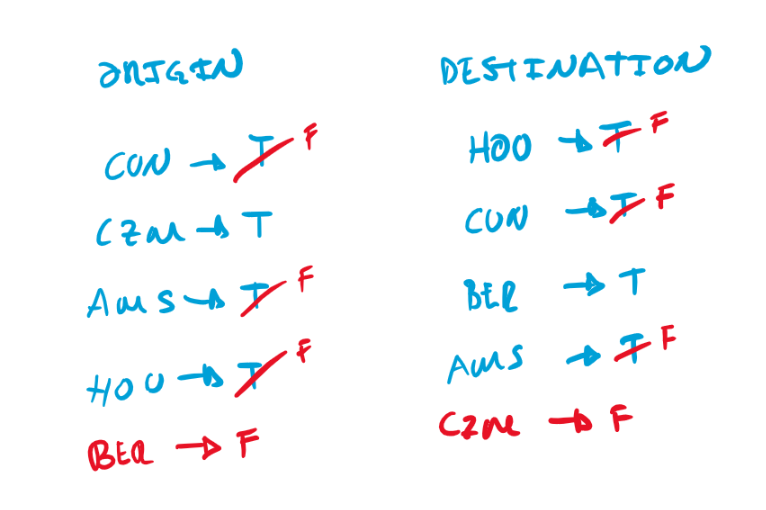 ORIGIN
CON → T F
CZM → T
AMS → T F
HOO → T F
BER → F
DESTINATION
HOO → T F
CON → T F
BER → T
AMS → T F
CZM → F